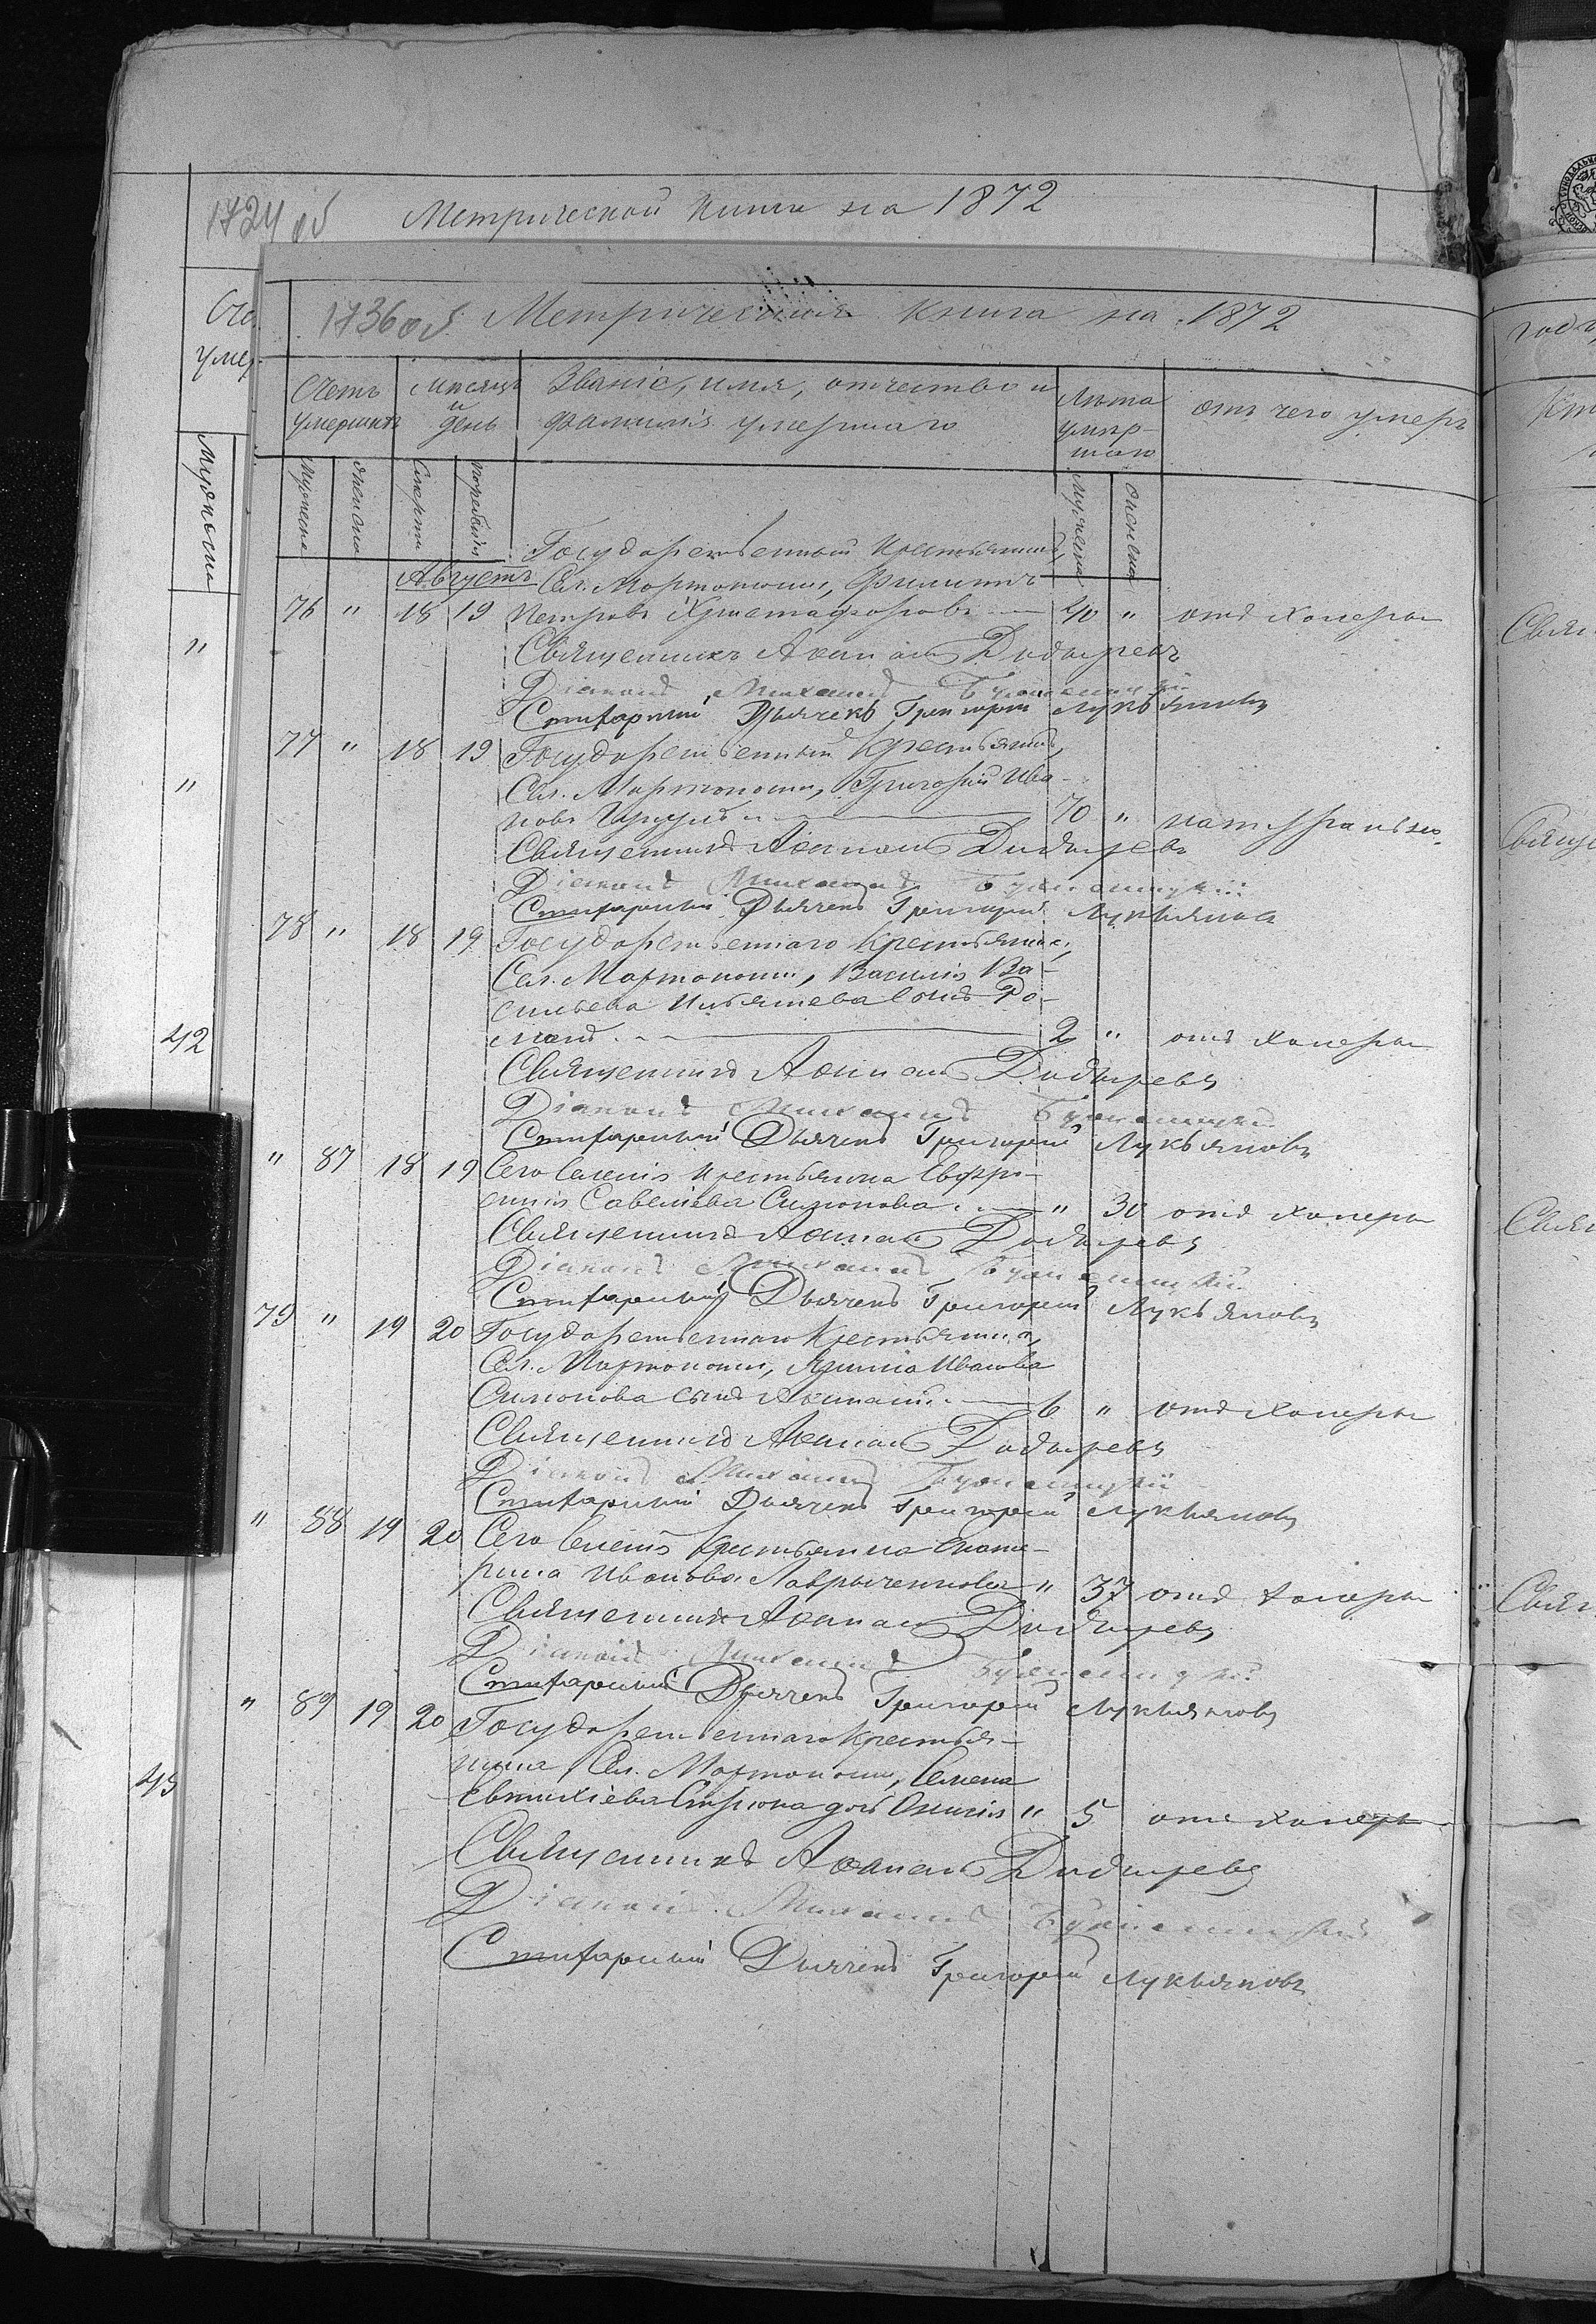 1724 об
Метрической книги на 1872
1736 об. Метрическая книга на 1872
Счетъ умершихъ
Мѣсяцъ и день
Званіе, имя, отчество и фамилія умершаго
Лѣта умершаго
отъ чего умеръ
Мужеска
Женска
Смерти
погребенія
Мужеска
Женска
Государственный Крестьянинъ,
Августъ Сел. Мартоноши, Филиппъ
76 " 18 19 Петровъ Христафоровъ 40 " отъ холеры
Священникъ Афанасій Дидыревъ
Діаконъ Михаилъ
Стихарный Дьячекъ Григорій Лукьяновъ
77 " 18 19 Государственный Крестьянинъ,
Сел. Мартоноши, Григорій Ива-
новъ 70 " натурально
Священникъ Афанасій Дидыревъ
Діаконъ Михаилъ
Стихарный Дьячекъ Григорій Лукьяновъ
78 " 18 19 Государственнаго Крестьянина,
Сел. Мартоноши, Василія Ва-
сильева Ильяшева сынъ Ро-
манъ 2 " отъ холеры
Священникъ Афанасій Дидыревъ
Діаконъ Михаилъ
Стихарный Дьячекъ Григорій Лукьяновъ
" 87 18 19 Сего Селенія крестьянка Евфро-
синія Савеліева Симонова " 30 отъ холеры
Священникъ Афанасій Дидыревъ
Діаконъ Михаилъ
Стихарный Дьячекъ Григорій Лукьяновъ
79 " 19 20 Государственнаго Крестьянина,
Сел. Мартоноши, Иванова
Симонова сынъ Афанасій 6 " отъ холеры
Священникъ Афанасій Дидыревъ
Діаконъ Михаилъ
Стихарный Дьячекъ Григорій Лукьяновъ
" 88 19 20 Сего Селенія Крестьянка Екате-
рина Иванова Лавриченкова " 37 отъ холеры
Священникъ Афанасій Дидыревъ
Діаконъ Михаилъ
Стихарный Дьячекъ Григорій Лукьяновъ
" 89 19 20 Государственнаго Крестья-
нина, Сел. Мартоноши, Семена
Евтихіева дочь " 5 отъ холеры
Священникъ Афанасій Дидыревъ
Діаконъ Михаилъ
Стихарный Дьячекъ Григорій Лукьяновъ
Мужеска
"
"
42
43